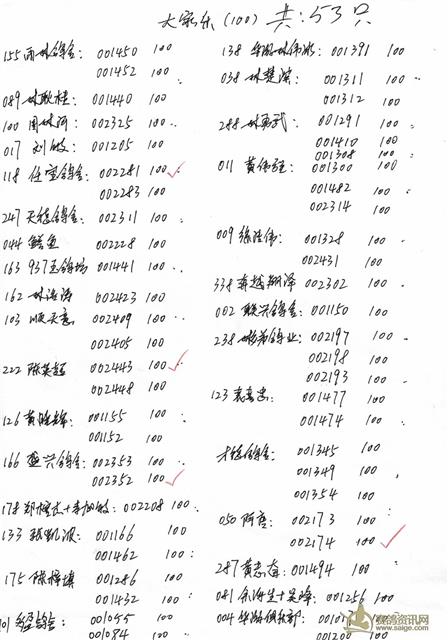 大家乐(100) 共:53只
155 雨林鸽舍 001450 100
001452 100
089 林耿桂 001440 100
100 周林河 002325 100
017 刘敏 001205 100
118 任望鸽舍 002281 100
002283 100
247 天缘鸽舍 002311 100
044 鲢鱼 002228 100
163 937主鸽场 001441 100
162 林洁涛 002423 100
103 顺天意 002409 100
002405 100
222 陈英超 002443 100
002448 100
126 黄胜锋 001155 100
001152 100
166 盛兴鸽舍 002353 100
002352 100
178 002208 100
133 凯波 001166 100
001462 100
175 陈泽填 001286 100
001432 100
001055 100
001084 100
138 001391 100
038 林楚滨 001311 100
001312 100
288 林勇武 001291 100
001410 100
001308 100
011 黄伟强 001300 100
001482 100
002314 100
009 徐洁伟 001328 100
002431 100
338 卓越翔泽 002302 100
002 联兴鸽舍 001150 100
238 鸽业 002197 100
002198 100
002193 100
123 001477 100
001474 100
才缘鸽舍 001345 100
001349 100
001354 100
050 阿彦 002173 100
002174 100
287 黄志奋 001494 100
081 001256 100
004 俱乐部
001200 100
赛鸽资讯网
www.saige.com